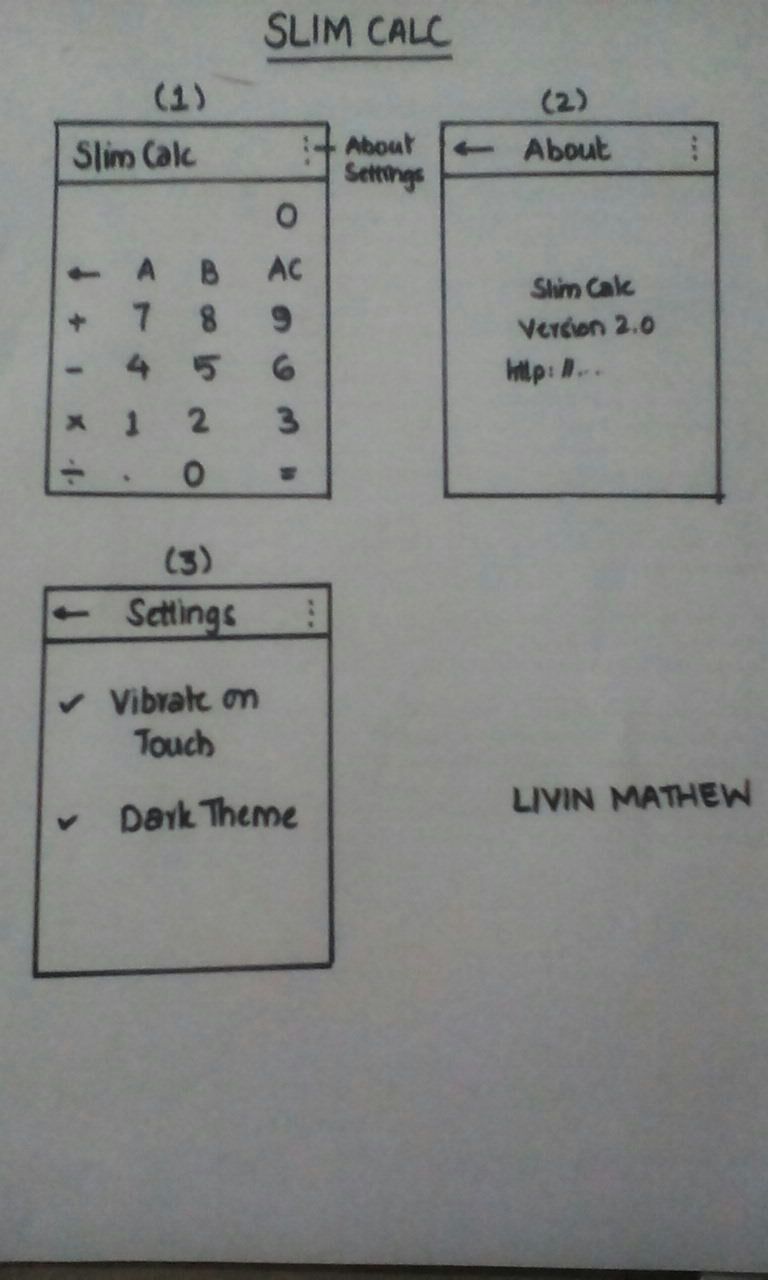 SLIM CALC
(1)
Slim Calc ⋮
About
Settings
0
← A B AC
+ 7 8 9
- 4 5 6
× 1 2 3
÷ . 0 =
(2)
← About ⋮
Slim Calc
Version 2.0
http://...
(3)
← Settings ⋮
✓ Vibrate on
Touch
✓ Dark Theme
LIVIN MATHEW